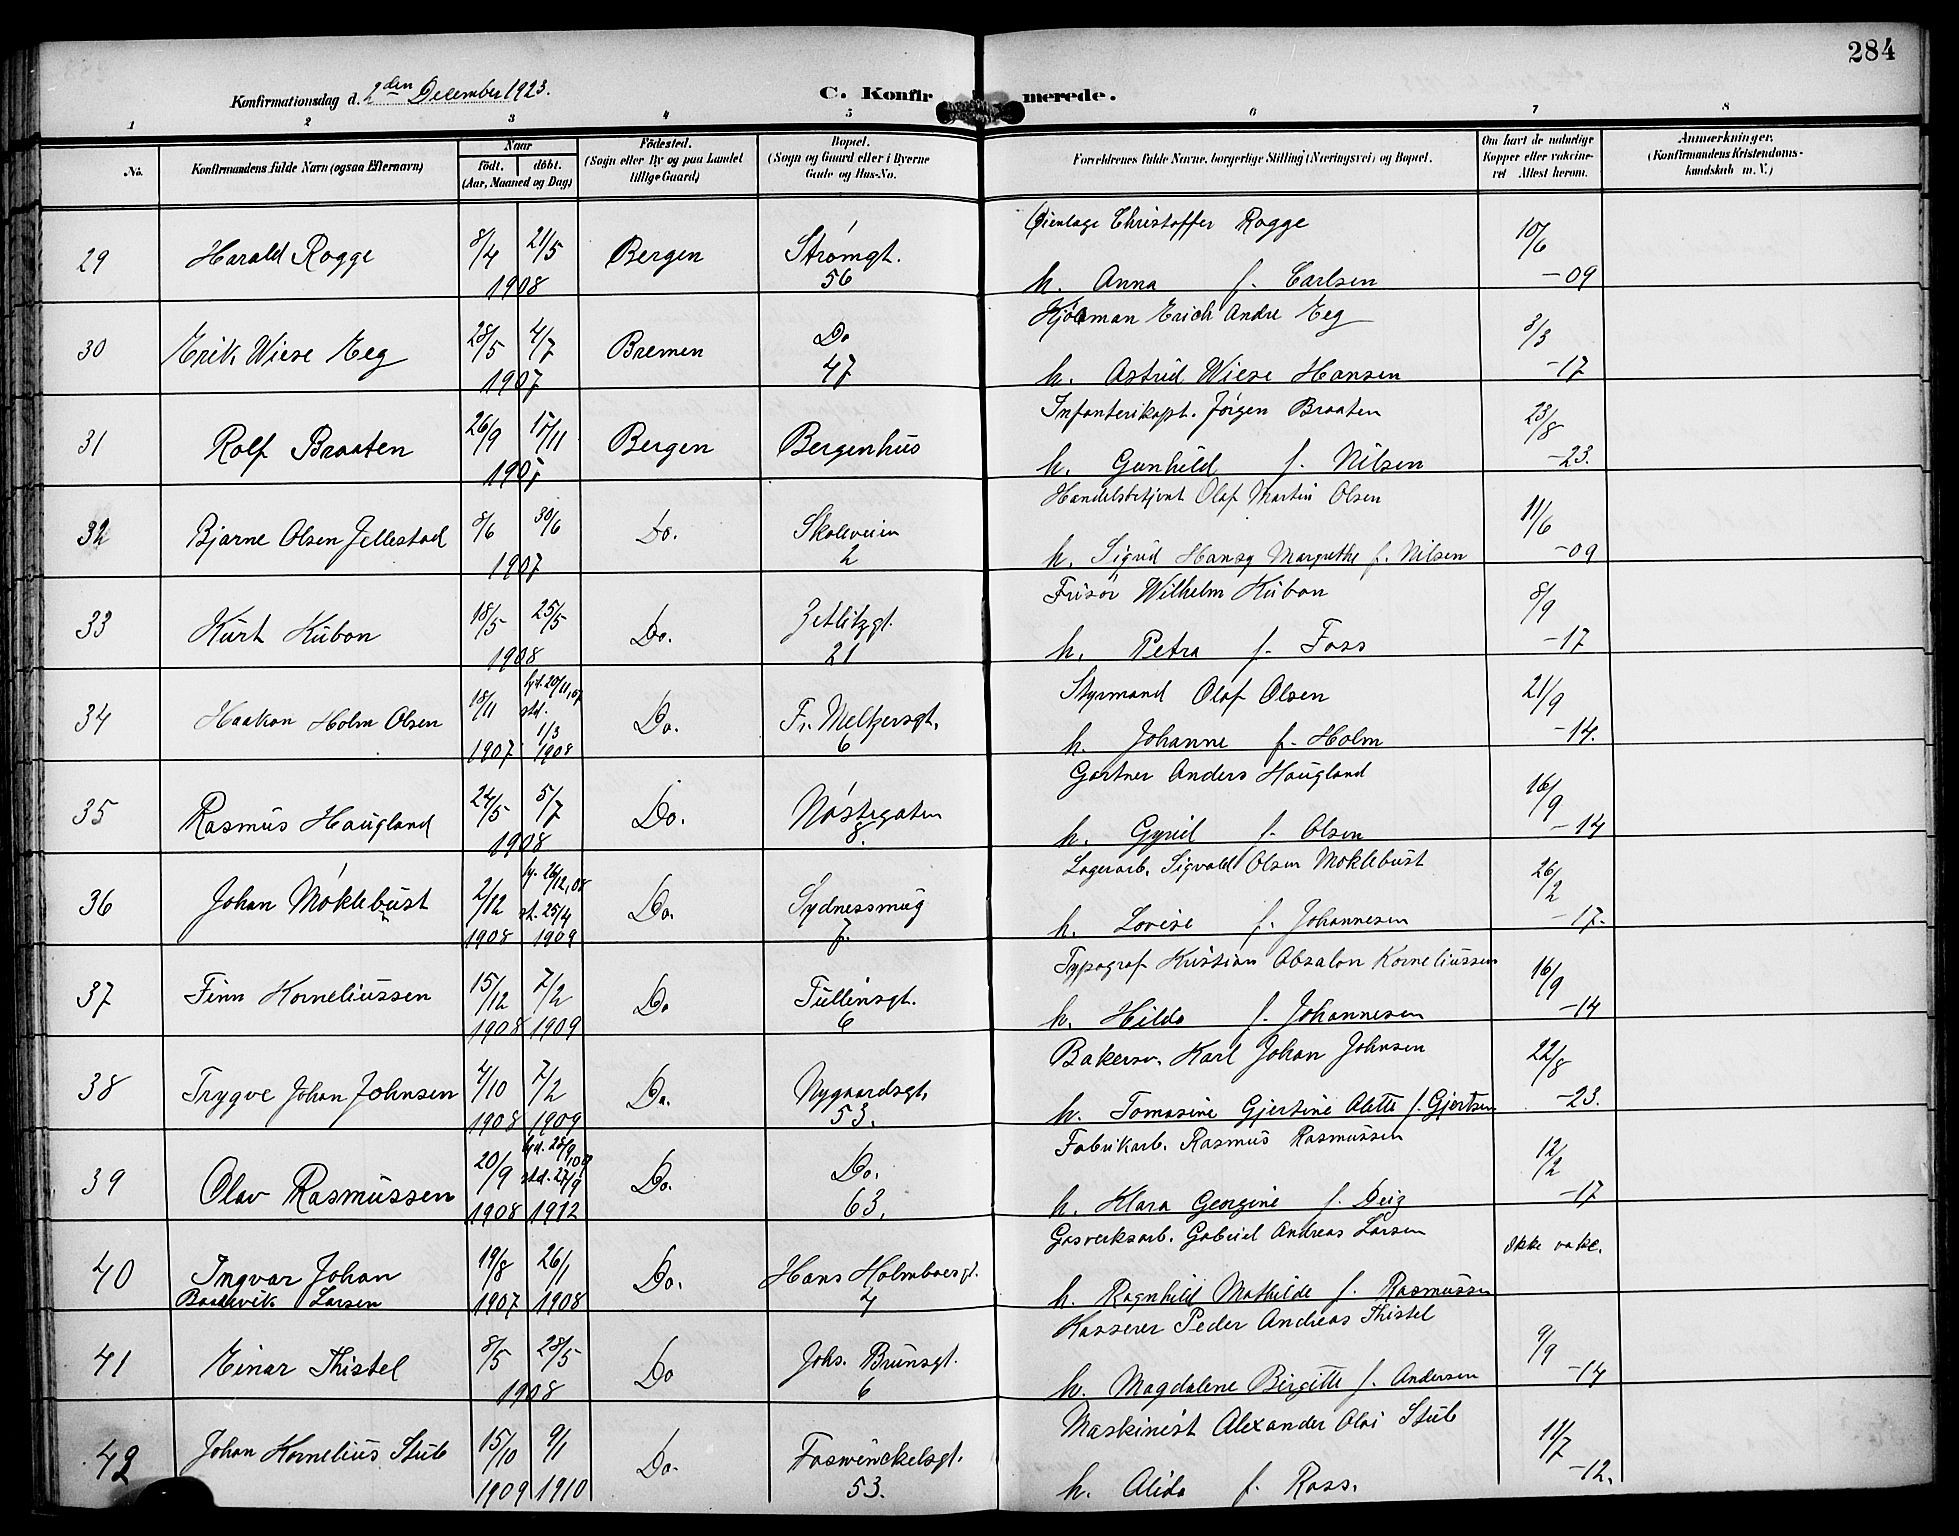 284
Konfirmationsdag d. 2den December 1923.
C. Konfirmerede.
1 2 3 4 5 6 7 8
No.
Konfirmandens fulde Navn (ogsaa Efternavn)
Naar
født. døbt.
(Aar, Maaned og Dag)
Fødested.
(Sogn eller By og paa Landet
tillige Gaard)
Bopæl.
(Sogn og Gaard eller i Byerne
Gade og Hus-No.
Forældrenes fulde Navne, borgerlige Stilling (Næringsvei) og Bopæl.
Om havt de naturlige
Kopper eller vakcine-
ret Attest herom.
Anmærkninger.
(Konfirmandens Kristendoms-
kundskab m. V.)
29 Harald Rogge 8/4 21/5 1908 Bergen Strømgt. 56
Øienlæge Christoffer Rogge
h. Anna f. Carlsen
10/6 -09
30 Erik Wiese Eeg 28/5 4/7 1907 Bremen Do 47
Kjøbman Erich Andre Eeg
h. Astrid Wiese Hansen
3/3 -17
31 Rolf Braaten 26/9 Bergen Bergenhus
Infanterikapt. Jørgen Braaten
h. Gunhild f. Nilsen
23/8 -23.
32 Bjarne Olsen Jellestad 8/6 30/6 1907 Do. Skoleveien 2
Handelsbetjent Olaf Martin Olsen
h. Sigrid Hansy Margrethe f. Nilsen
11/6 -09
33 Kurt Kubon 18/5 25/5 1908 Do. Zetlitzgt. 21
Frisør Wilhelm Kubon
h. Petra f. Foss
8/9 -17
34 Haakon Holm Olsen 18/11 1907 hjd. 20/11,07 std. 1/3 1908 Do. Fr. Meltzersgt. 6
Styrmand Olaf Olsen
h. Johanne f. Holm
21/9 -14.
35 Rasmus Haugland 24/5 5/7 1908 Do. Nøstegaten 8.
Gartner Anders Haugland
h. Gyrid f. Olsen
16/9 -14
36 Johan Møklebust 2/12 1908 hj. 26/12,08 st. 25/4 1909 Do. Sydnessmug 7.
Lagerarb. Sigvald Olsen Møklebust
h. Lovise f. Johannesen
26/2 -17.
37 Finn Korneliussen 15/12 1908 7/2 1909 Do Tullinsgt. 6
Typograf Kristian Absalon Korneliussen
h. Hilda f. Johannesen
16/9 -14
38 Trygve Johan Johnsen 4/10 1908 7/2 1909 Do. Nygaardsgt. 53.
Bakersv. Karl Johan Johnsen
h. Tomasine Gjertine Alette f. Gjertsen
22/8 -23.
39 Olav Rasmussen 20/9 1908 hjd. 28/9,08 std. 27/9 1912 Do. Do. 63.
Fabrikarb. Rasmus Rasmussen
h. Klara Georgine f. Deig
12/2 -17
40 Ingvar Johan
Baalsvik Larsen 19/8 1907 26/1 1908 Do. Hans Holmboesgt. 4
Gasverksarb. Gabriel Andreas Larsen
h. Ragnhild Mathilde f. Rasmussen
Ikke vakc.
41 Einar Thistel 8/5 28/5 1908 Do Johs. Brunsgt. 6
Kasserer Peder Andreas Thistel
h. Magdalene Birgitte f. Andersen
9/9 -14
42 Johan Kornelius Stub 15/10 1909 9/1 1910 Do. Foswinckelsgt. 53.
Maskinist Alexander Olai Stub
h. Alida f. Ross.
11/7 -12.